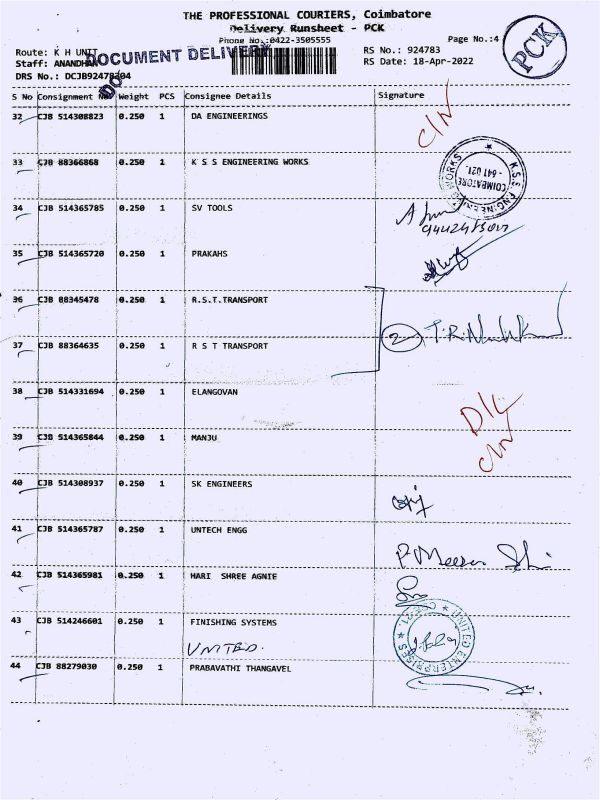 THE PROFESSIONAL COURIERS, Coimbatore
Delivery Runsheet - PCK
Phone No.:0422-3505555
Page No.:4
PCK
Route: K H UNIT
RS No.: 924783
DOCUMENT DELIVERY
Staff: ANANDHAN
RS Date: 18-Apr-2022
DRS No.: DCJB92478304
S No Consignment No Weight PCS Consignee Details Signature
32 CJB 514308823 0.250 1 DA ENGINEERINGS
C/N
33 CJB 88366868 0.250 1 K S S ENGINEERING WORKS
K.S.S ENGINEERING WORKS
COIMBATORE - 641 021.
34 CJB 514365785 0.250 1 SV TOOLS
35 CJB 514365720 0.250 1 PRAKAHS
36 CJB 88345478 0.250 1 R.S.T.TRANSPORT
2
37 CJB 88364635 0.250 1 R S T TRANSPORT
38 CJB 514331694 0.250 1 ELANGOVAN
D/L
39 CJB 514365844 0.250 1 MANJU
C/N
40 CJB 514308937 0.250 1 SK ENGINEERS
41 CJB 514365787 0.250 1 UNTECH ENGG
42 CJB 514365981 0.250 1 HARI SHREE AGNIE
43 CJB 514246601 0.250 1 FINISHING SYSTEMS
UNITED.
UNITED ENTERPRISES
44 CJB 88279030 0.250 1 PRABAVATHI THANGAVEL